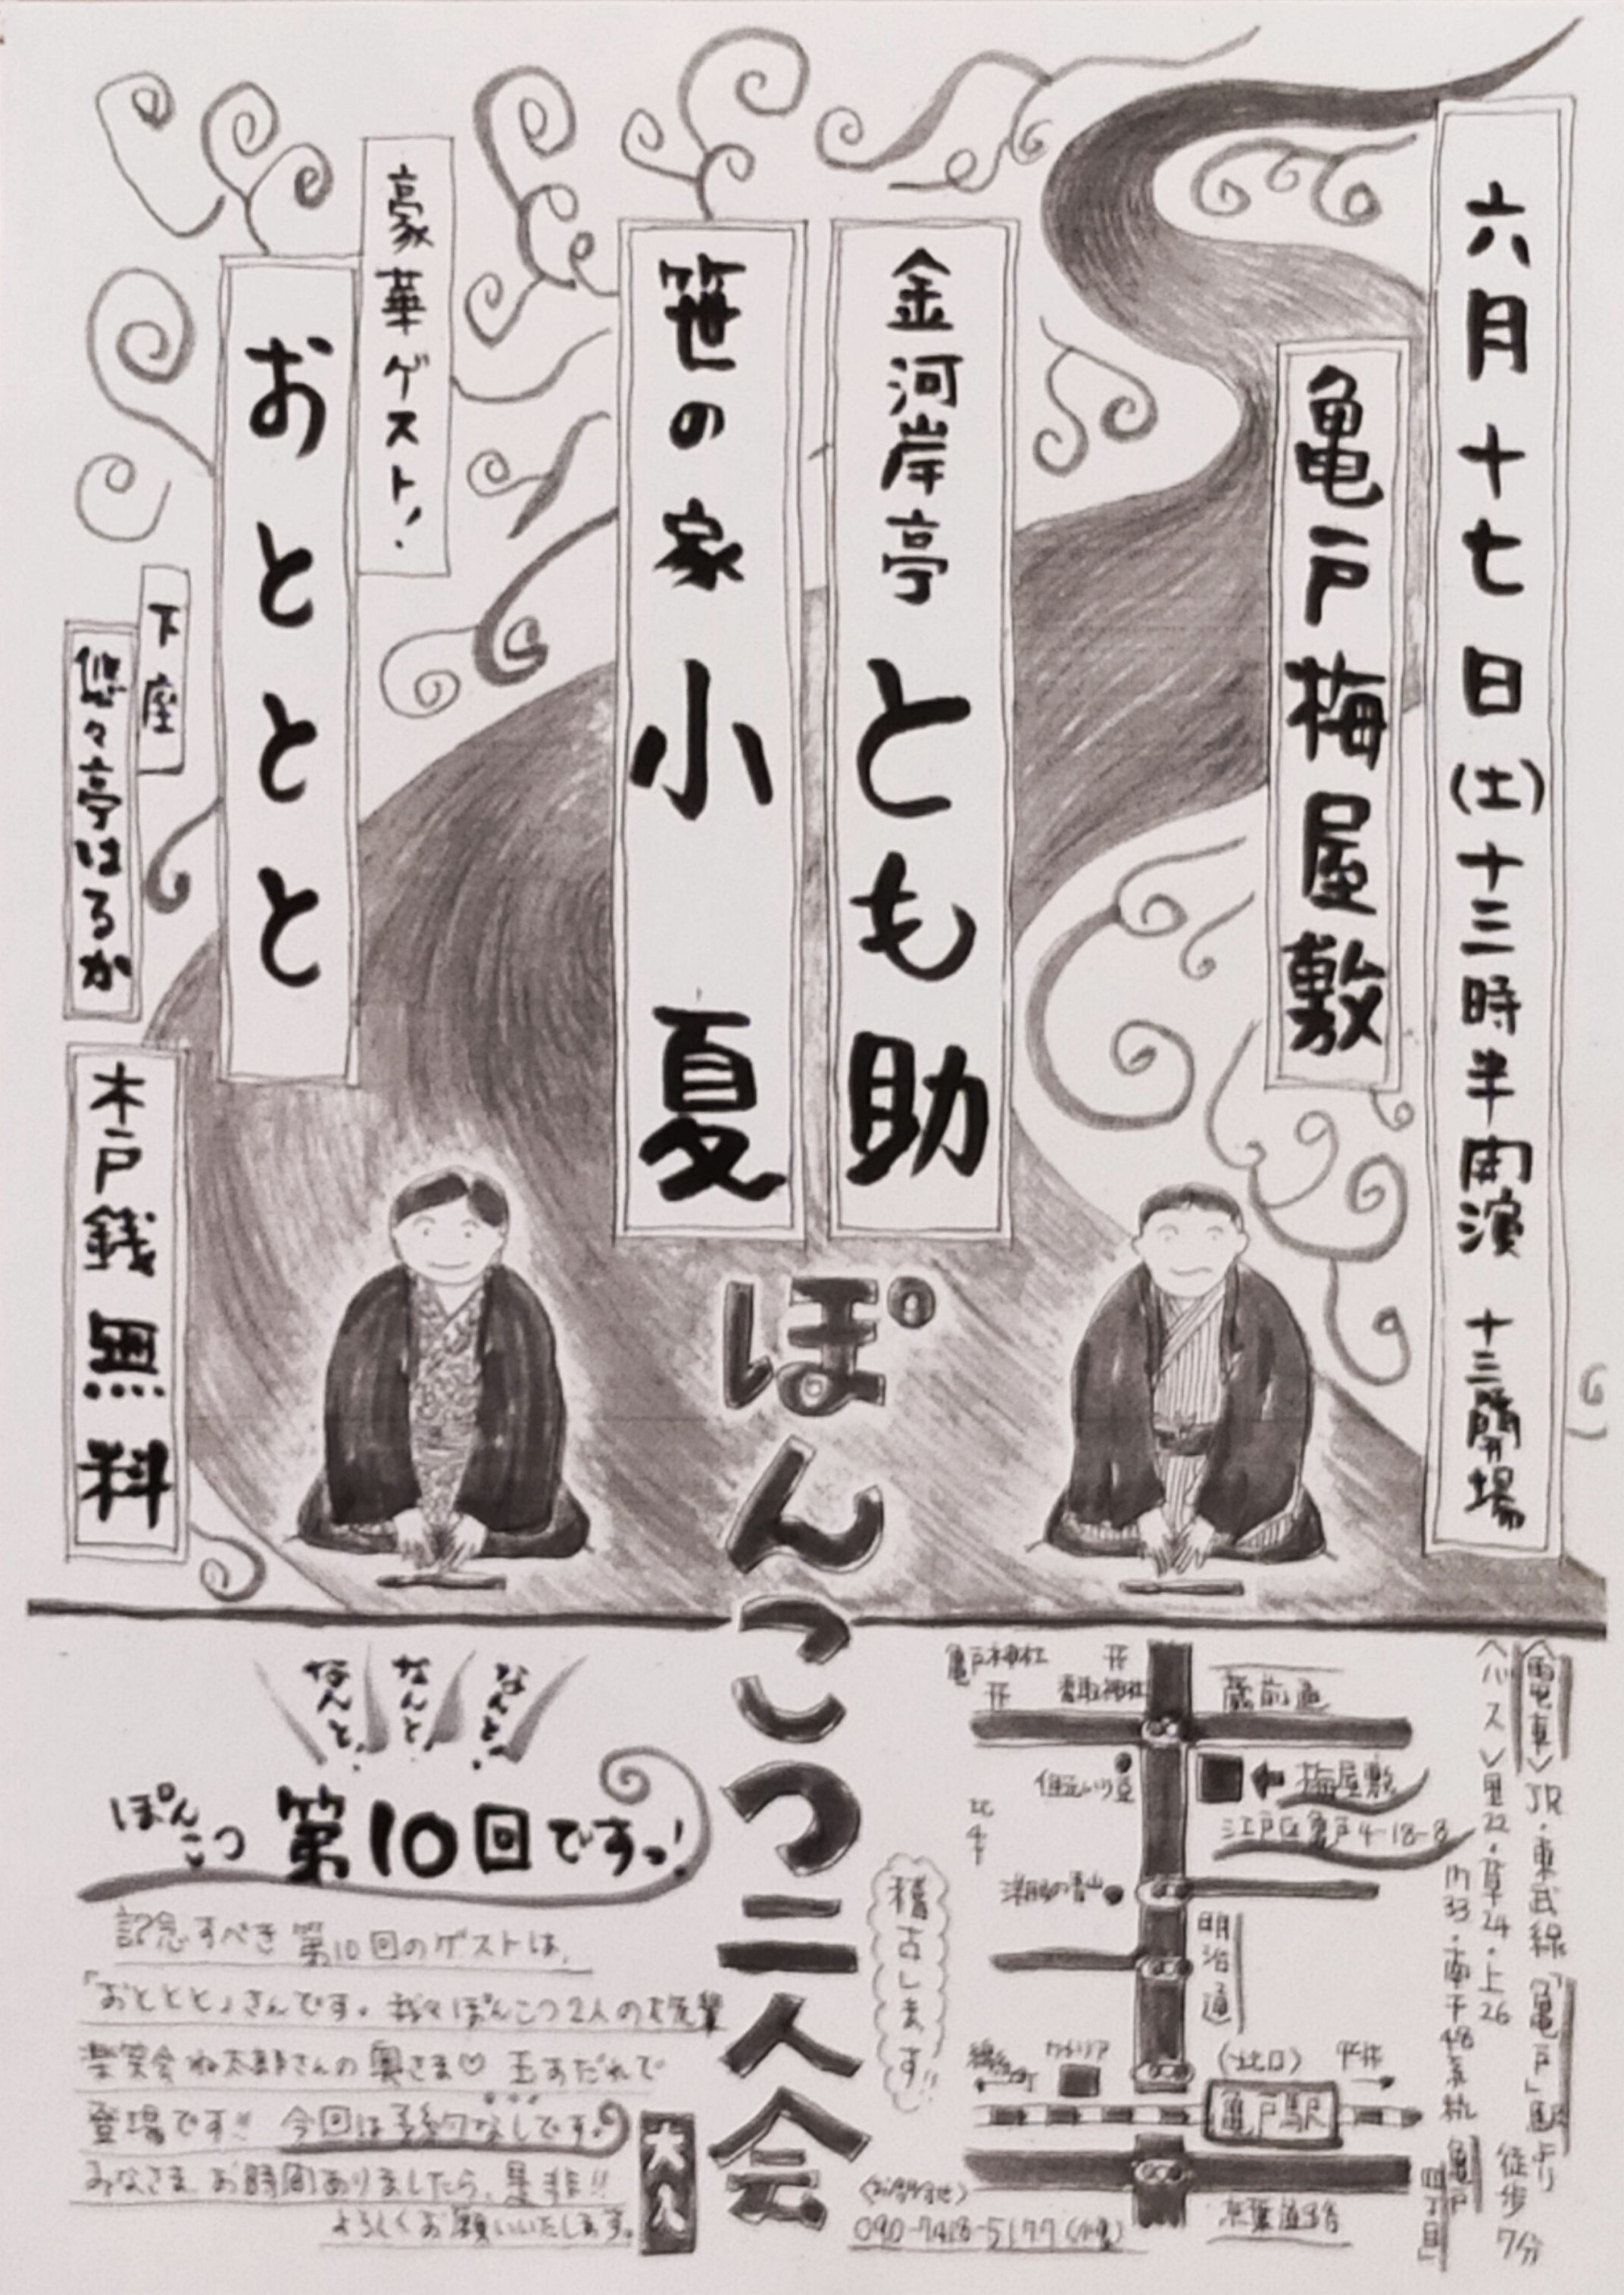 六月十七日(土)十三時半開演 十三時開場
亀戸梅屋敷
金河岸亭 とも助
笹の家 小夏
豪華ゲスト!
おととと
下座
悠々亭はるか
木戸銭無料
ぽんこつ二人会
なんと!
なんと!
なんと!
ぽんこつ 第10回ですっ!
記念すべき第10回のゲストは、
「おととと」さんです。我々ぽんこつ2人の大先輩
楽笑会ね太郎さんの奥さま♡ 玉すだれで
登場です!! 今回は予約なしです。
みなさま お時間ありましたら、是非!!
よろしくお願いいたします。
大入
稽古します!!
<お問合せ>
亀戸神社
香取神社
蔵前通
梅屋敷
江戸区亀戸4-18-8
明治通
(北口)
平井
亀戸駅
京葉道路
<電車>JR・東武線「亀戸」駅より 徒歩7分
<バス>里22・草24・上26